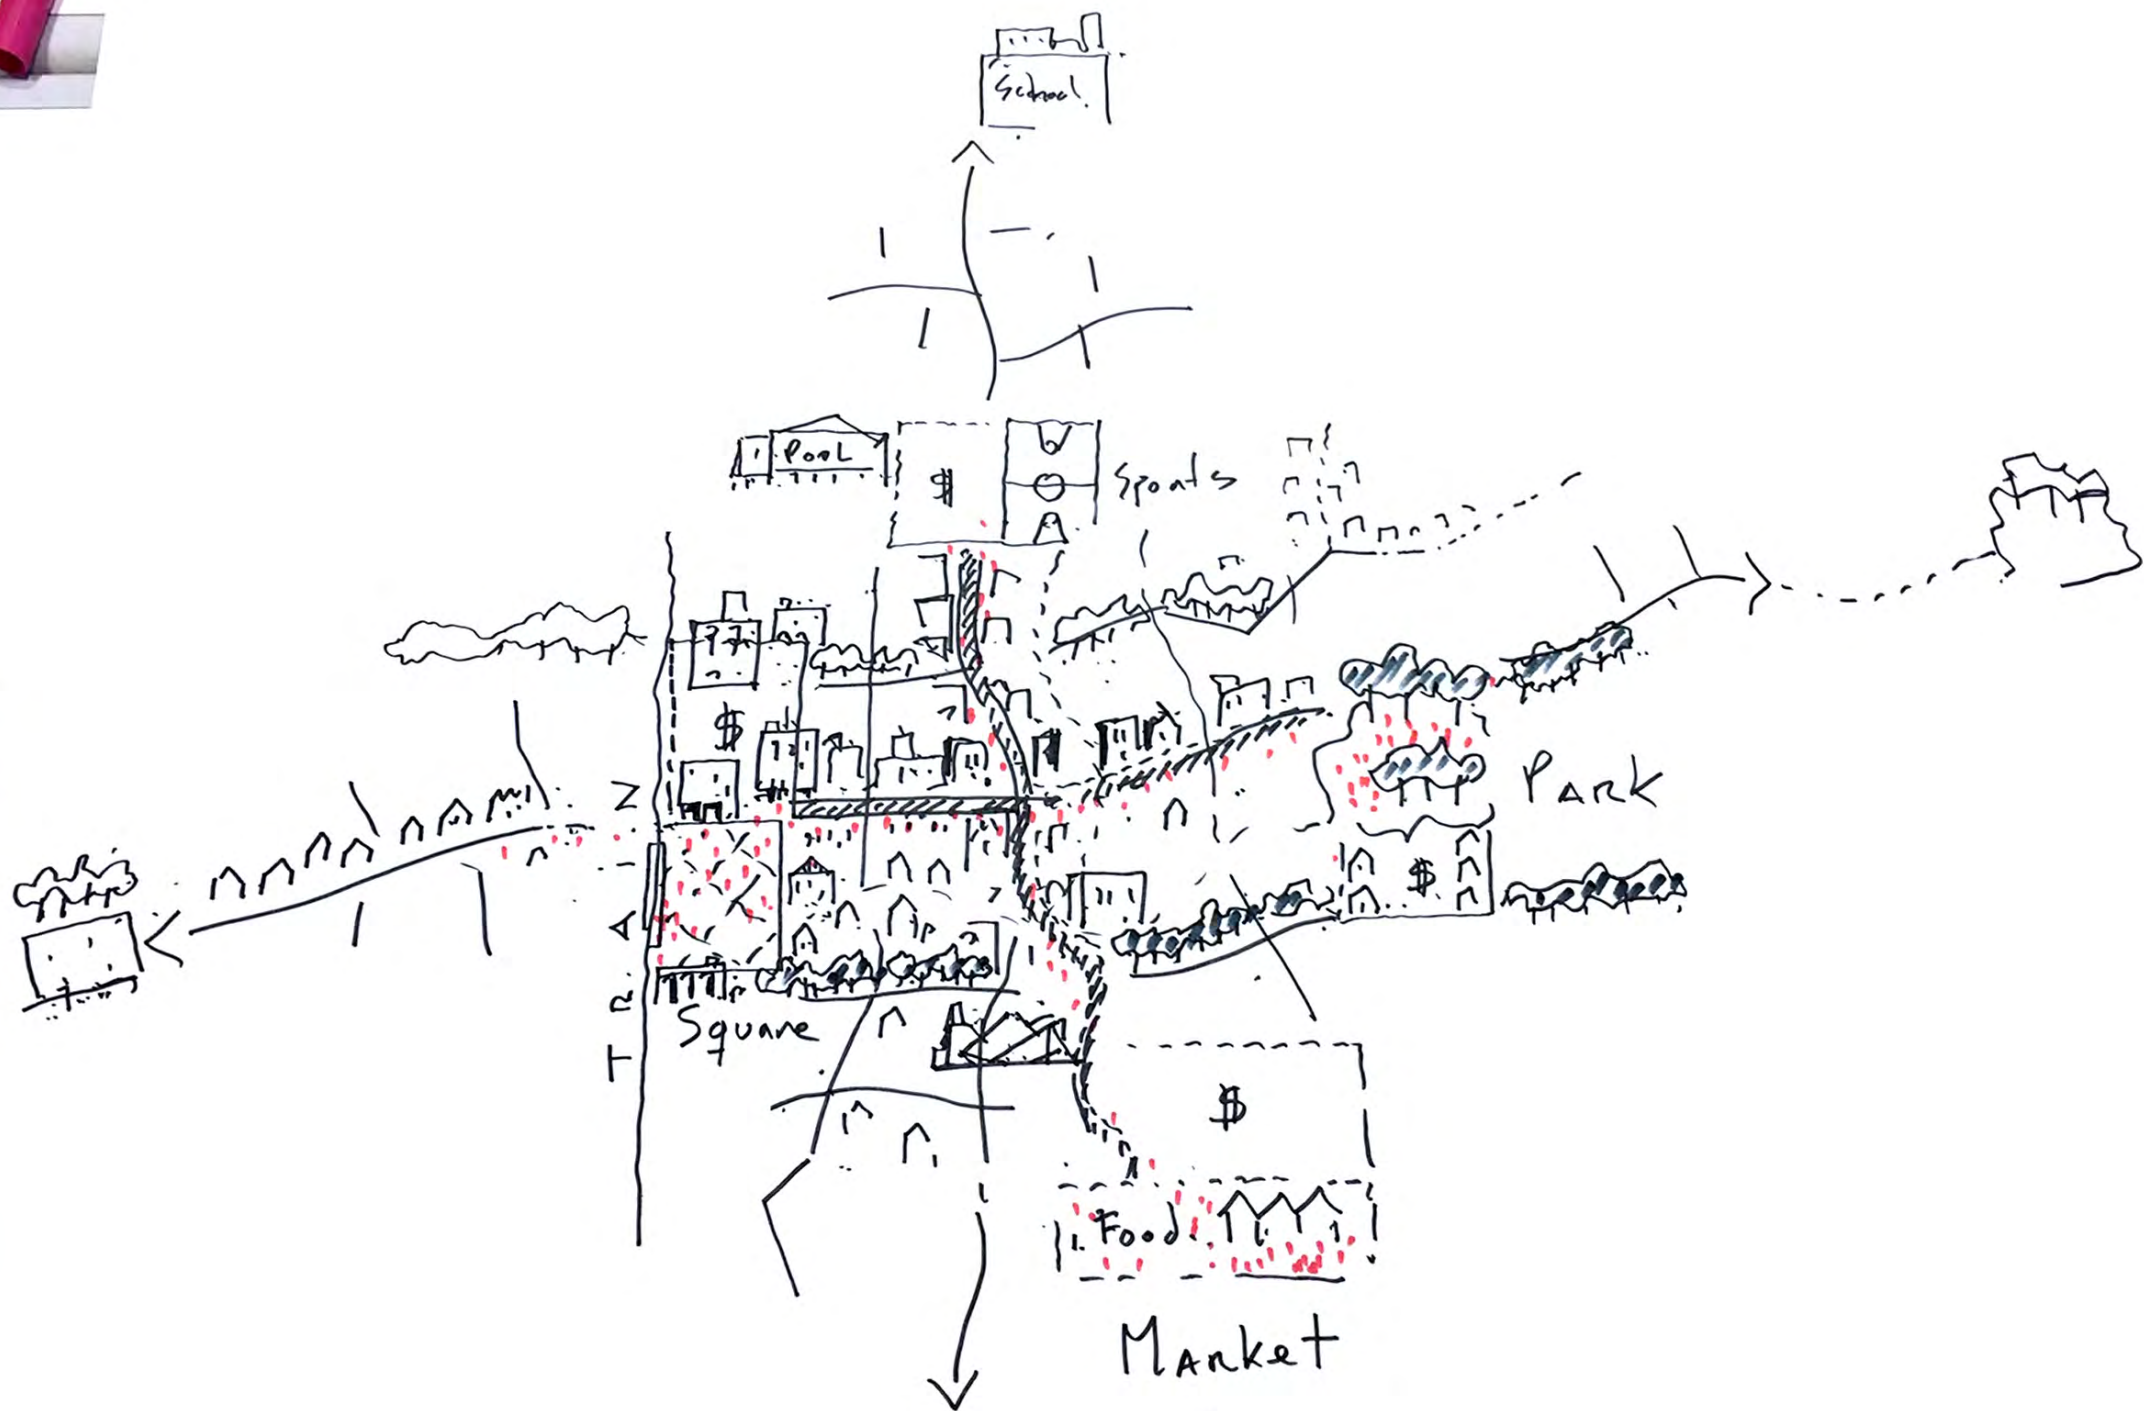 School.
POOL
$
Sports
$
PARK
$
TRAIN
Square
$
Food
Market